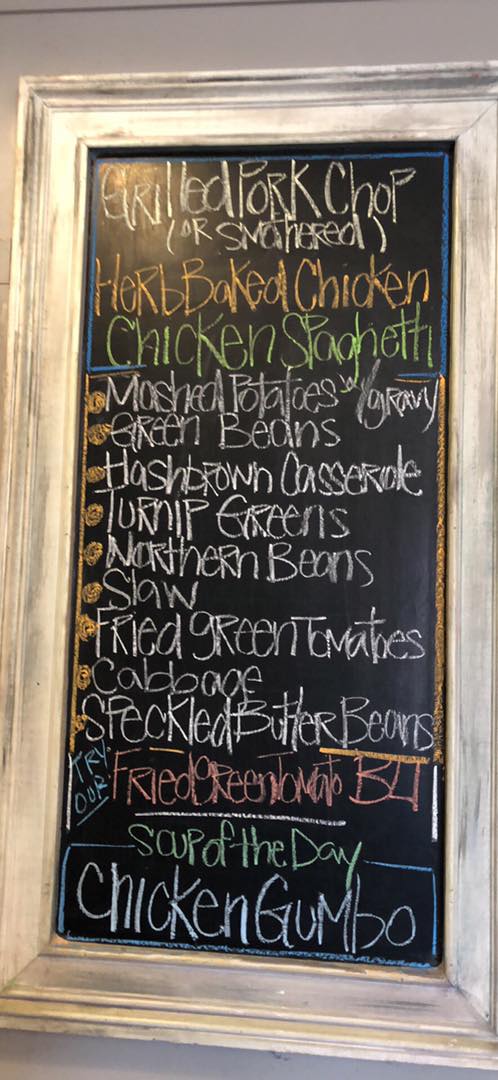 Grilled Pork Chop
(or smothered)
Herb Baked Chicken
Chicken Spaghetti
Mashed Potatoes w/gravy
Green Beans
Hashbrown Casserole
Turnip Greens
Northern Beans
Slaw
Fried green Tomatoes
Cabbage
Speckled Butter Beans
TRY OUR
Fried green tomato BLT
Soup of the Day
Chicken Gumbo